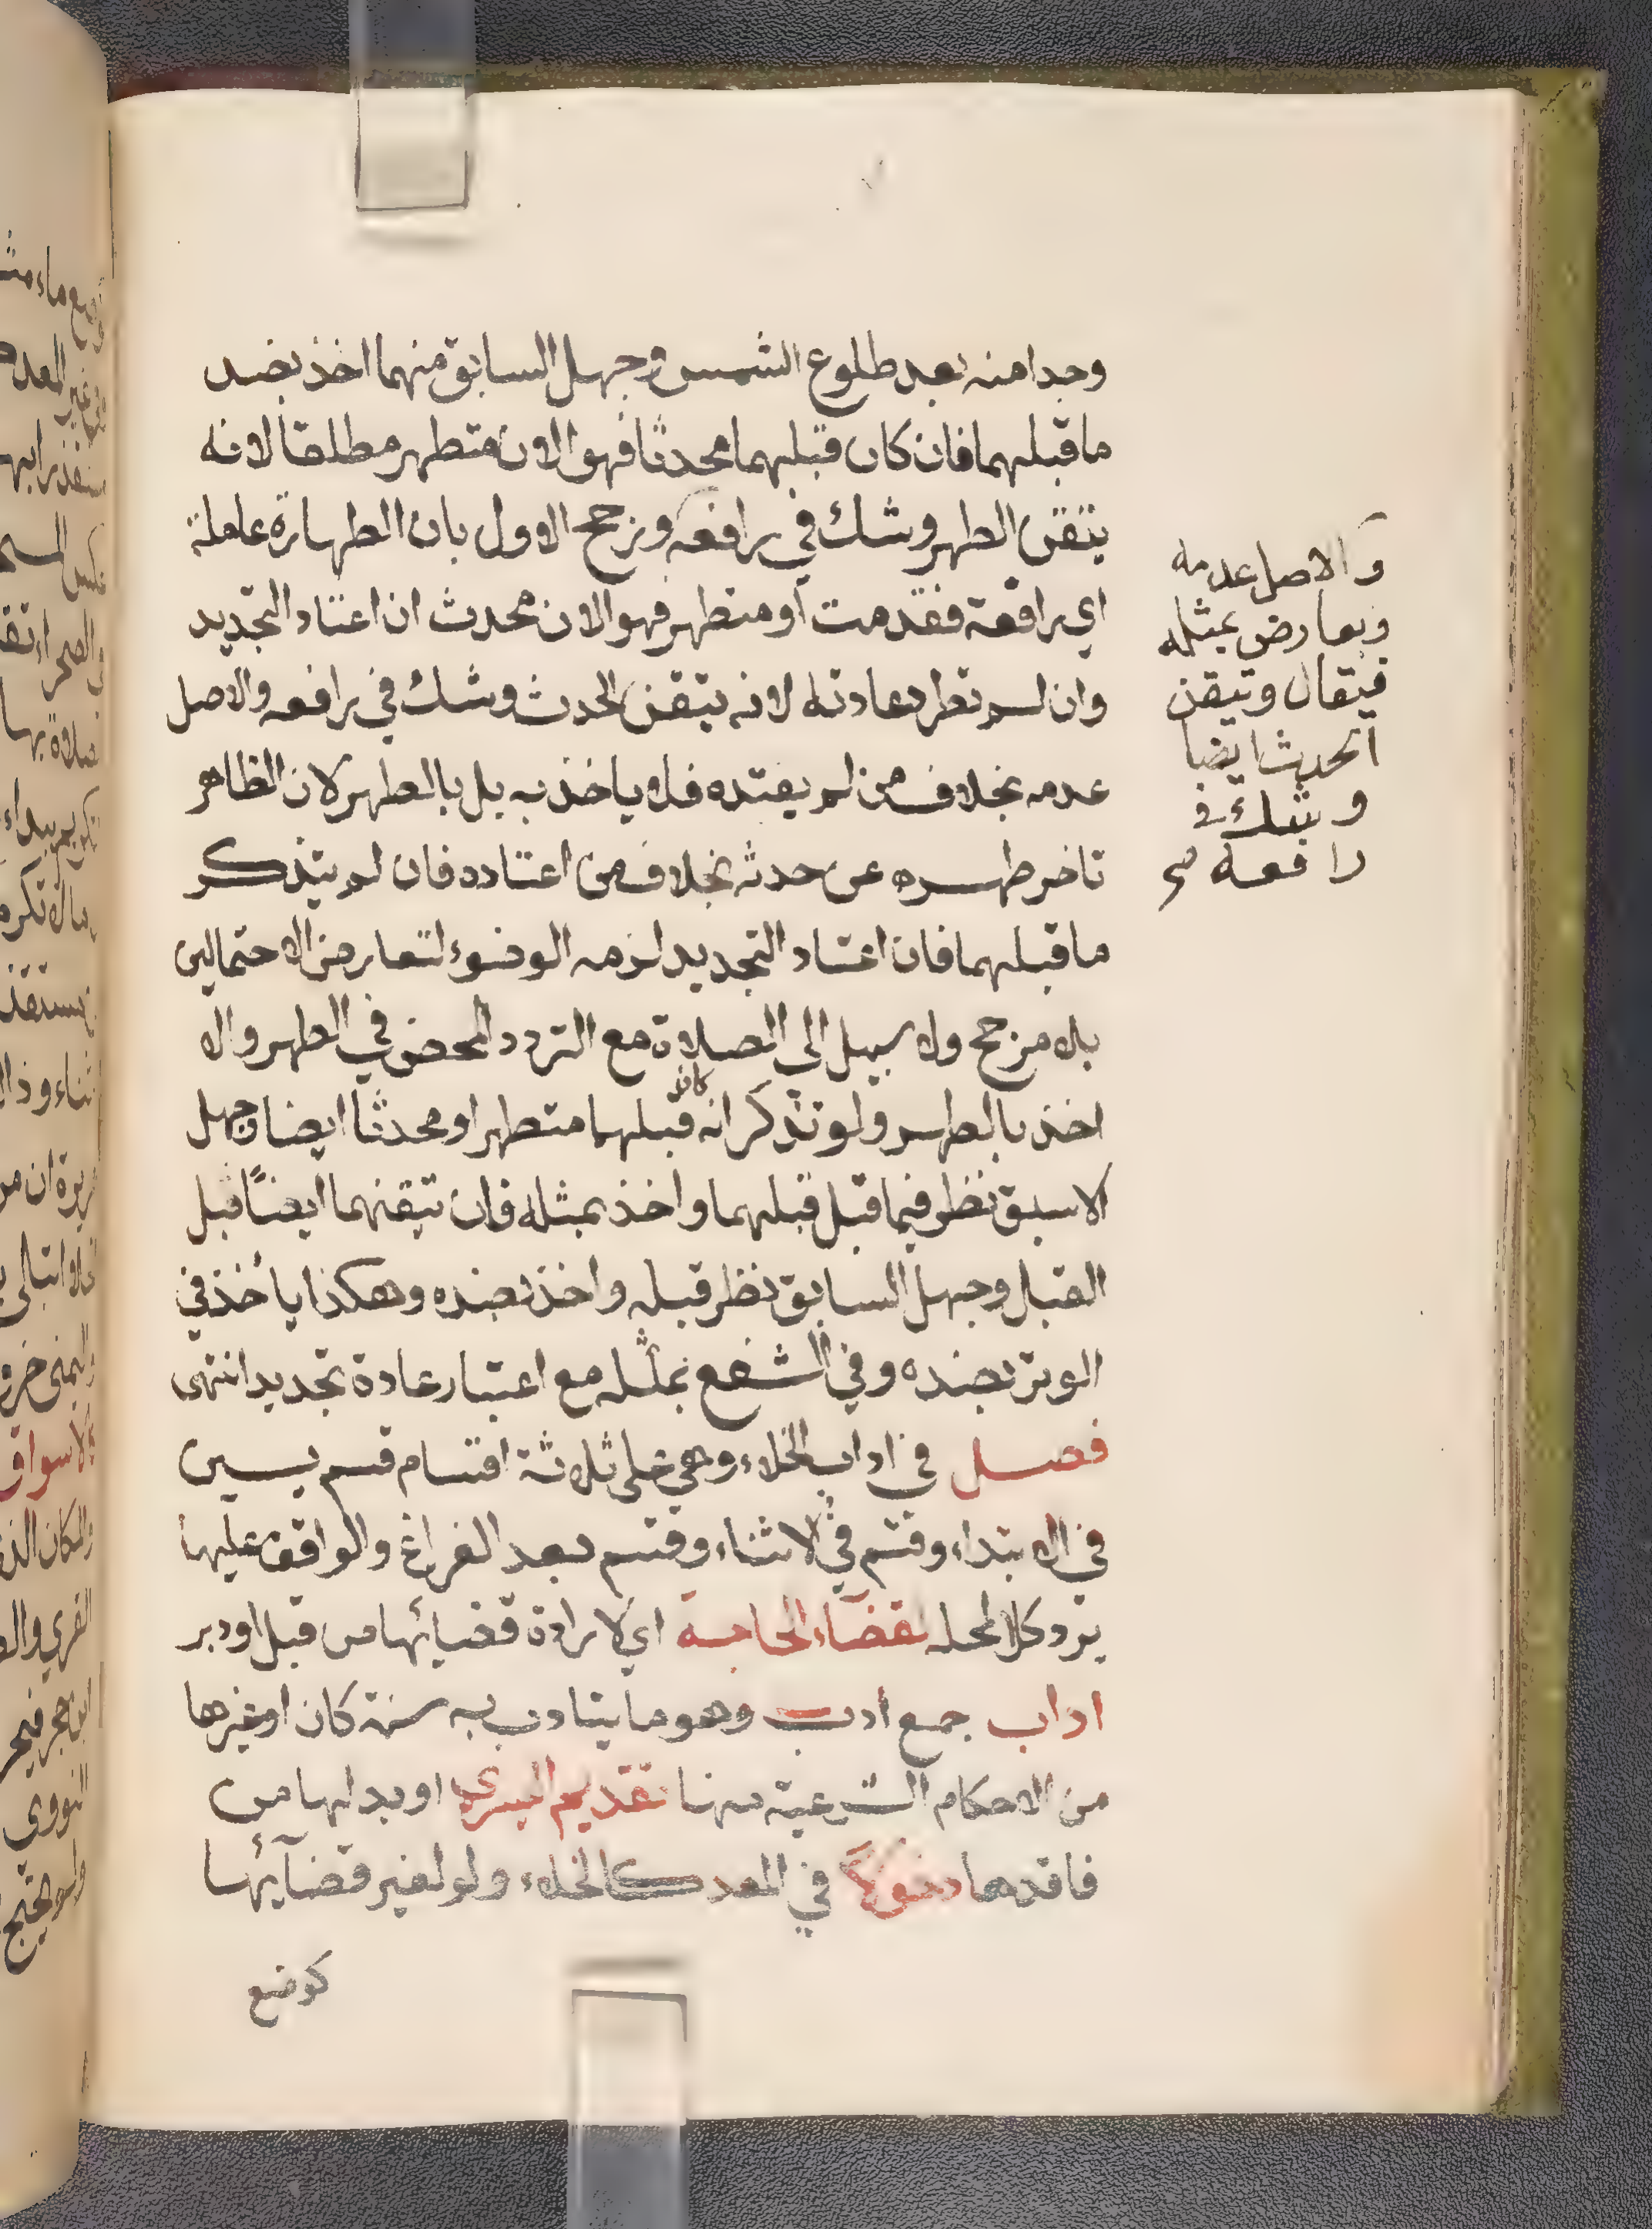 وجدا منه بعد طلوع الشمس وجهل السابق منهما اخذ بضد
ما قبلهما فان كان قبلهما محدثا فهو الان متطهر مطلقا لانه
يتقن الطهر وشك في رافعه ورجح الاول بان الطهارة عاملة
اي رافعة فقدمت او متطهر فهو الان محدث ان اعتاد التجديد
وان لم تطرد عادته لانه يتقن الحدث وشك في رافعه والاصل
عدمه بخلاف من لم يعتده فلا ياخذ به بل بالطهر لان الظاهر
تاخر طهره عن حدثه بخلاف من اعتاده فان لم يتذكر
ما قبلهما فان اعتاد التجديد لزمه الوضوء لتعارض الاحتمالين
بلا مرجح ولا سبيل الى الصلاة مع التردد المحض في الطهر والا
اخذ بالطهر ولو تذكر انه كان قبلهما متطهرا او محدثا ايضا وجهل
الاسبق نظر فيما قبل قبلهما واخذ بمثله فان تيقنهما ايضًا قبل
القبل وجهل السابق نظر قبله واخذ بضده وهكذا يأخذ في
الوتر بضده وفي الشفع بمثله مع اعتبار عادة تجديد انتهى
فصل في اداب الخلاء وهي على ثلاثة اقسام قسم يسن
في الابتداء وقسم في الاثناء وقسم بعد الفراغ والواقف عليها
يرد كلا لمحله لقضآء الحاجة اي لارادة قضائها من قبل او دبر
اداب جمع ادب وهو ما يتادب به سنة كان او غيرها
من الاحكام الشرعية منها تقديم اليسرى او بدلها من
فاقدها دخولاً في المعد كالخلاء ولو لغير قضآئها
كوضع
والاصل عدمه
وبعارض بمثله
فيقال وتيقن
الحدث ايضا
وشك في
رافعه صح